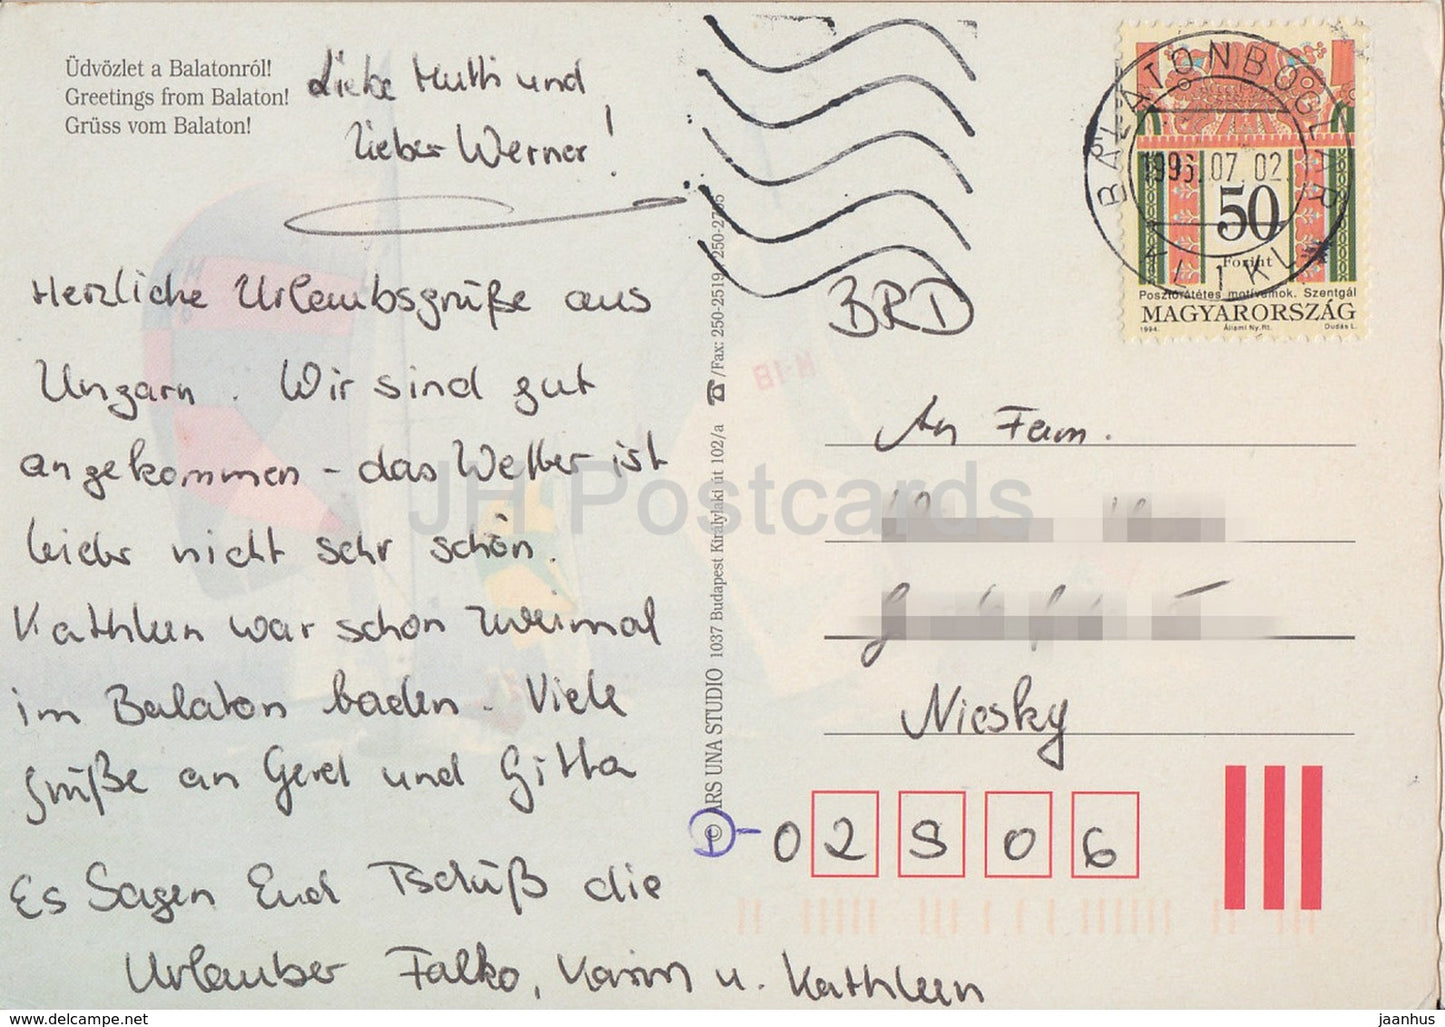 Üdvözlet a Balatonról!
Greetings from Balaton!
Grüss vom Balaton!
Liebe Mutti und
lieber Werner!
Herzliche Urlaubsgrüße aus
Ungarn. Wir sind gut
angekommen - das Wetter ist
leider nicht sehr schön.
Kathleen war schon zweimal
im Balaton baden. Viele
Grüße an Gerd und Gitta
Es Sagen Euch Tschüß die
Urlauber Falko, Karin u. Kathleen
© ARS UNA STUDIO 1037 Budapest Királylaki út 102/a ☎/Fax: 250-2519, 250-2765
BALATONBOGLÁR
1996.07.02.
50
Forint
Posztórátétes motívumok. Szentgál
MAGYARORSZÁG
1994. Állami Ny. Rt. Dudás L.
BRD
An Fam.
Niesky
D-02906
JH Postcards
www.delcampe.net
jaanhus